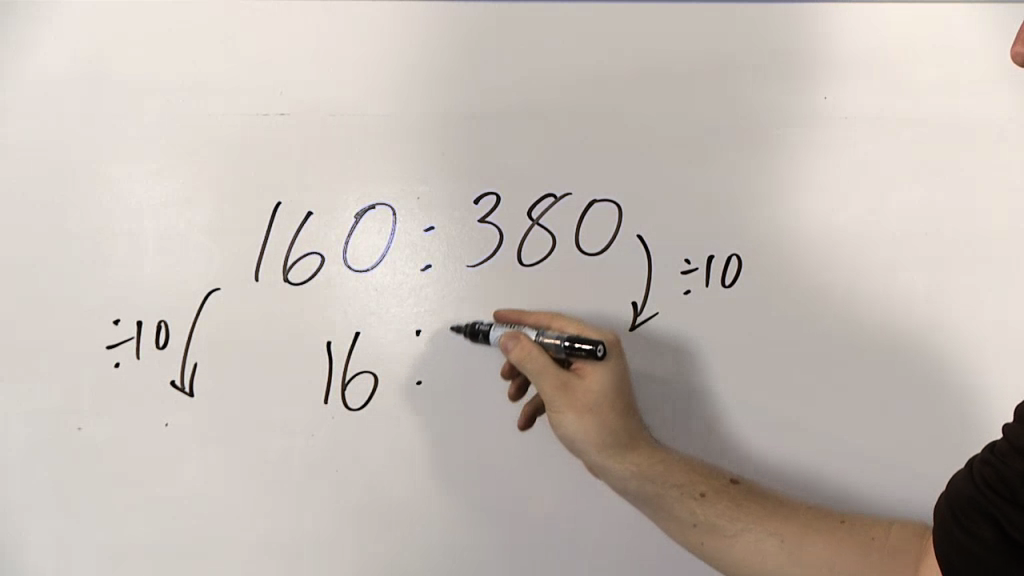 160 : 380
÷10
÷10
16 :